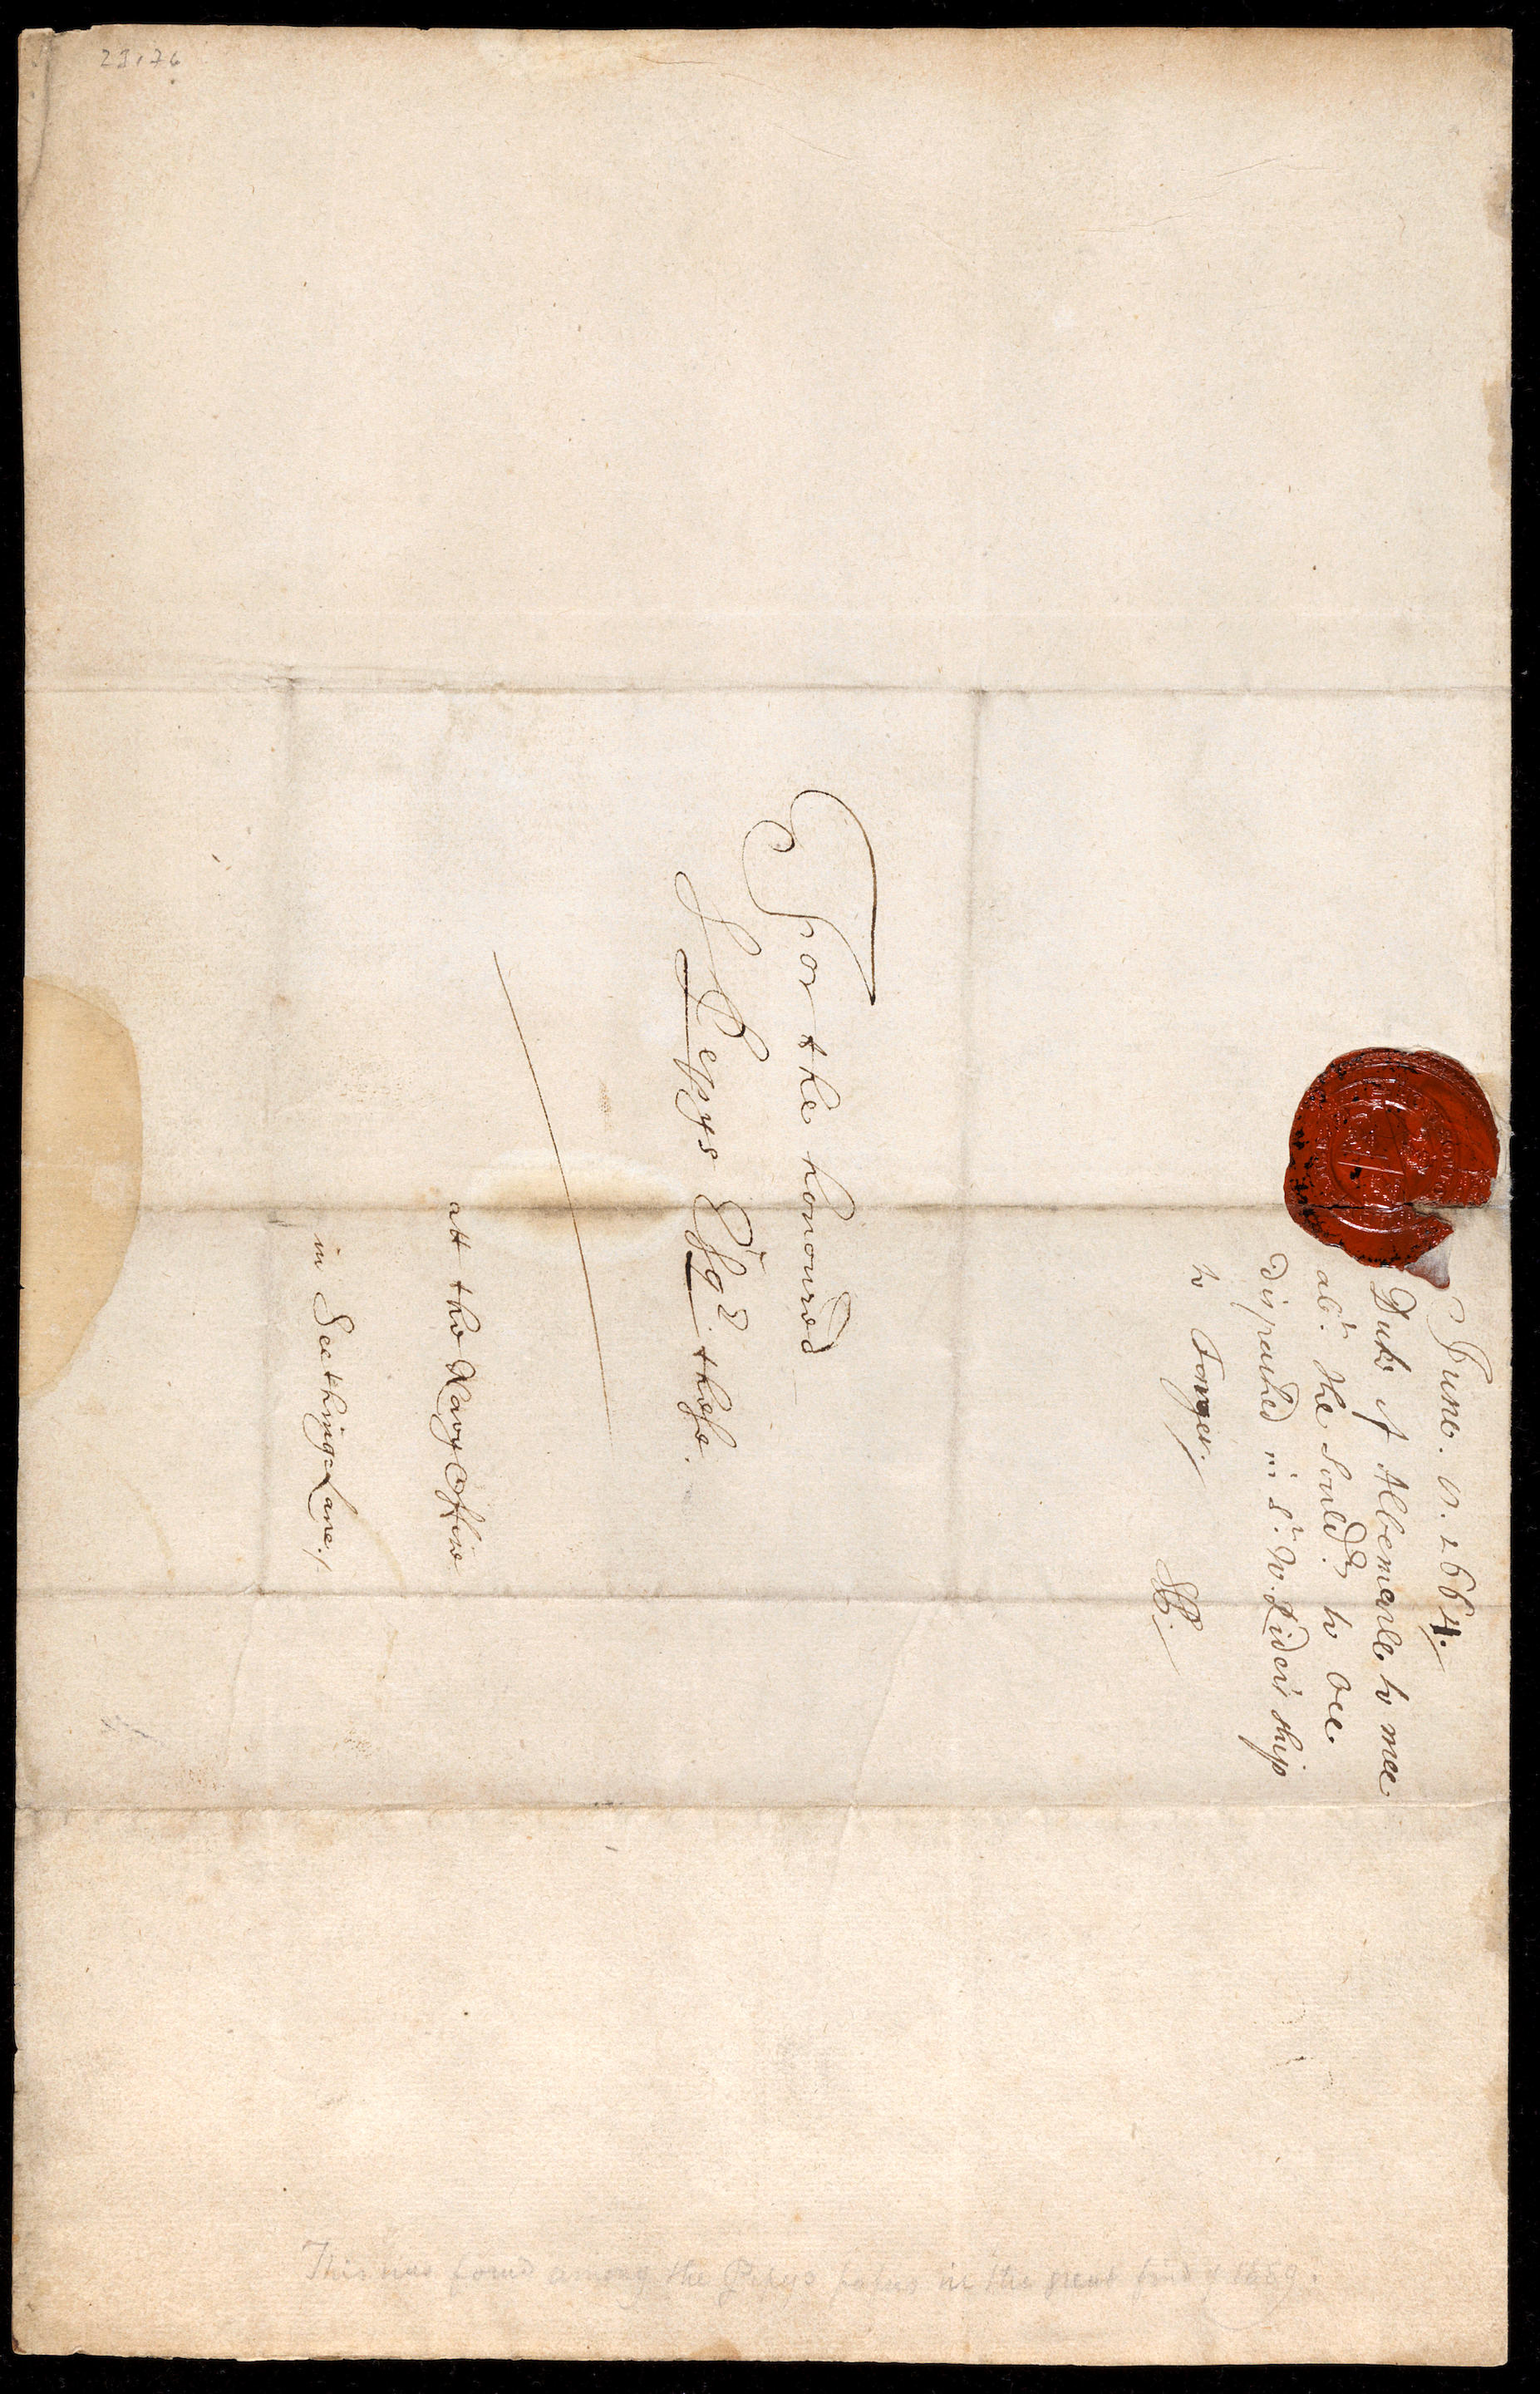 For the honoured
S Pepys Esqr these.
att the Navy Office
in Seething=Lane./
June. 1664./
Duke of Albemarle to mee
abt. the Sould.rs to bee
dispatched in Sr. W. Rider's ship
to Tanger./
This was found among the Pepys papers in the great find of 1889.